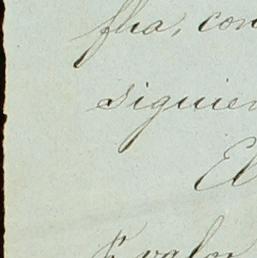 fha, con
siguien
El
valor